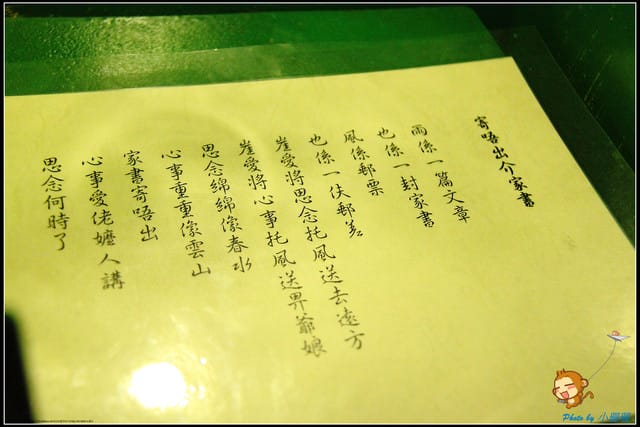 寄唔出介家書
雨係一篇文章
也係一封家書
風係郵票
也係一伕郵差
崖愛將思念托風送去遠方
崖愛將心事托風送畀爺娘
思念綿綿像春水
心事重重像雲山
家書寄唔出
心事愛佬嬤人講
思念何時了
Photo by 小